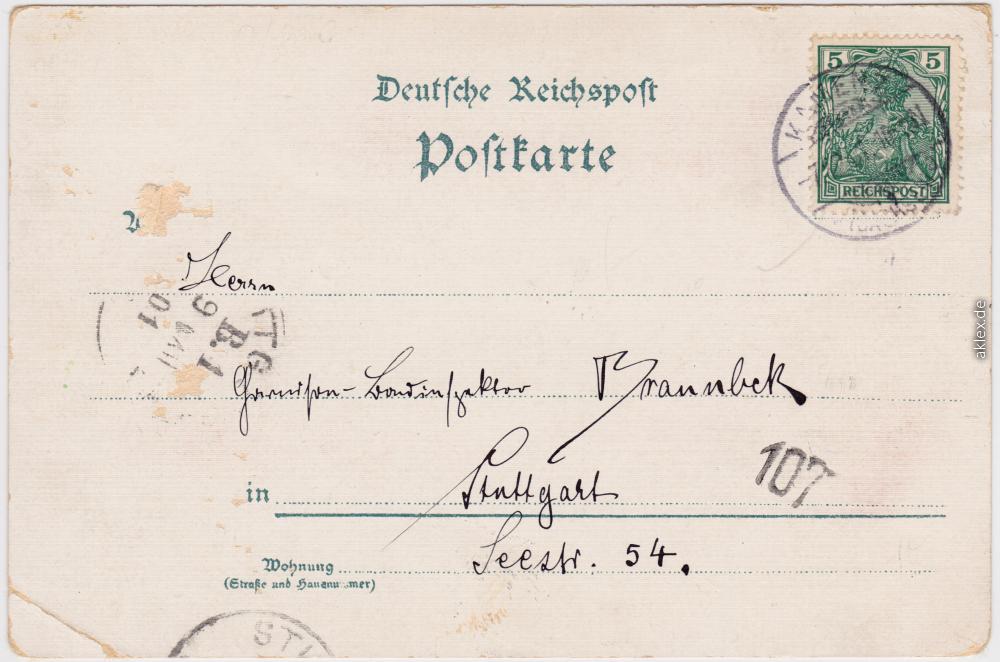 Deutsche Reichspost
Postkarte
5 5
REICHSPOST
Herrn
9
01
B.1
Garnison-Bauinspektor Braunbek
107
in Stuttgart
Seestr. 54.
Wohnung
(Straße und Hausnummer)
aklex.de